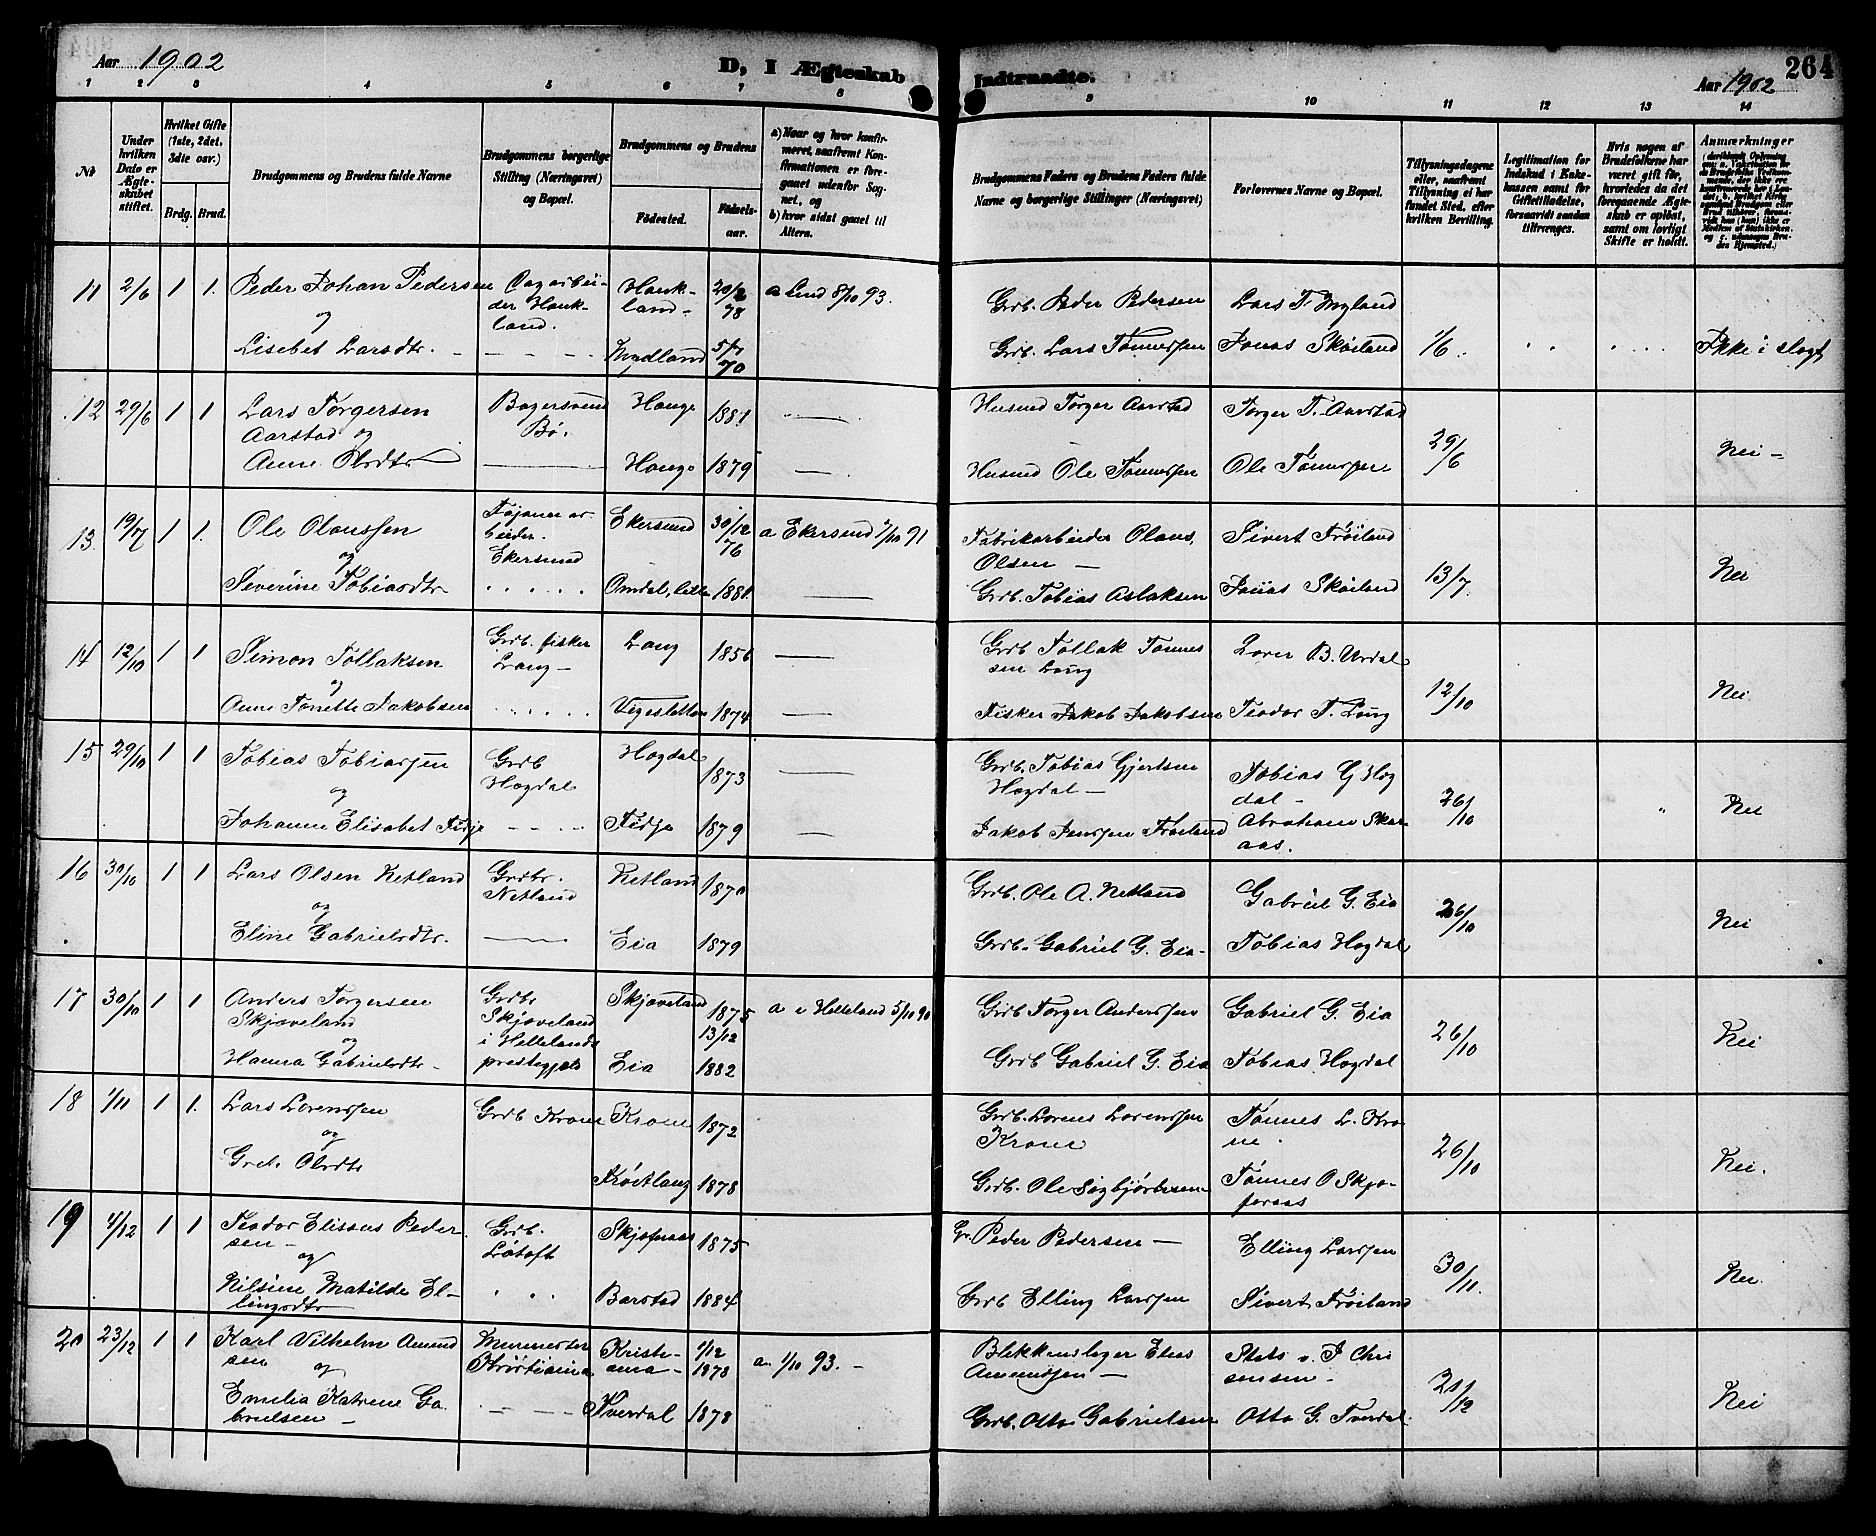 Aar 1902
D, I Ægteskab Indtraadte.
Aar 1902
264
1 2 3 4 5 6 7 8 9 10 11 12 13 14
No
Under hvilken Dato er Ægteskabet stiftet.
Hvilket Gifte (1ste, 2det, 3die osv.)
Brdg. Brud.
Brudgommens og Brudens fulde Navne
Brudgommens borgerlige Stilling (Næringsvei) og Bopæl.
Brudgommens og Brudens
Fødested.
Fødselsaar.
a) Naar og hvor konfirmeret, saafremt Konfirmationen er foregaaet udenfor Sognet, og
b) hvor sidst gaaet til Alters.
Brudgommens Faders og Brudens Faders fulde Navne og borgerlige Stillinger (Næringsvei)
Forlovernes Navne og Bopæl.
Tillysningsdagene eller, saafremt Tillysning ei har fundet Sted, efter hvilken Bevilling.
Legitimation for Indskud i Enkekassen samt for Giftetilladelse, forsaavidt saadan tiltrænges.
Hvis nogen af Brudefolkene har været gift før, hvorledes da det foregaaende Ægteskab er opløst, samt om lovligt Skifte er holdt.
Anmærkninger
11 2/6 1 1. Peder Johan Pedersen Dagarbeider Haukland. Haukland 20/2 78 a Lund 8/10 93. Grb. Peder Pedersen Lars T. Mgland
og
Lisebet Larsdtr. Mydland 5/7 70 Grb. Lars Tønnessen Jonas Skøiland 1/6 Ikke i slegt
12 29/6 1 1 Lars Torgersen Aarstad og Bagersvend Bø. Hauge 1881 Husmd Torger Aarstad Torger T. Aarstad
Anne Olsdtr Hauge 1879 Husmd Ole Tønnessen Ole Tønnessen 29/6 Nei
13 19/7 1 1. Ole Olaussen Ekersund Ekersund 30/12 76 a Ekersund 4/10 91 Fabrikarbeider Olaus Olsen Sivert Frøiland
og
Severine Tobiasdtr Omdal, 1881. Grb. Tobias Aslaksen Jonas Skøiland 13/7 Nei
14 12/10 1 1 Simon Tollaksen Grdb. fisker Long Long 1856 Grdb Tollak Tønnessen Long B. Urdal
og
Anne Tonette Jakobsen 1874 Fisker Jakob Jakobsen Teodor T. Long 12/10 Nei
15 29/10 1 1 Tobias Tobiassen Grdb Hogdal Hogdal 1873 Grdb. Tobias Gjertsen Hogdal Tobias G Hogdal
og
Johanne Elisabet Fidje Fidje 1879 Jakob Jenssen Frøiland Abraham Skaraas. 26/10 Nei
16 30/10 1 1 Lars Olsen Netland Grdbr. Netland Netland 1870 Grdb. Ole A. Netland Gabriel G. Eia
og
Eline Gabrielsdtr. Eia 1879 Grdb. Gabriel G. Eia Tobias Hogdal 26/10 Nei
17 30/10 1 1 Anders Torgersen Skjæveland Grdbr Skjæveland i Hellelands prestegjeld Skjæveland 1875 13/12 a i Helleland 5/10 90 Grdb Torger Anderssen Gabriel G. Eia
og
Hanna Gabrielsdtr Eia 1882 Grdb Gabriel G. Eia Tobias Hogdal 26/10 Nei
18 1/11 1 1. Lars Lorenssen Grdb Krone Krone 1872 Grdb. Lorens Lorenssen Krone Tønnes L. Krone.
og
Grete Olsdtr Frøitlang 1878 Grdb. Ole Sigbjørnsen Tønnes O Skjoforaas 26/10 Nei.
19 4/12 1 1 Teodor Elisæus Pedersen Grdb. Løtoft 1875 Gr. Peder Pedersen Elling Larssen
og
Nilsine Matilde Ellingsdtr Barstad 1884 Grdb Elling Larssen Sivert Frøiland 30/11. Nei
20 23/12 1 1 Karl Vilhelm Amundsen Murmester Christiania Kristiania 1/12 1878 a. 1/10 93. Blikkenslager Elias Amundsen
og
Emelia Katrine Gabrielsen Tverdal 1878 Grdb. Otto Gabrielsen Otto G. Tverdal 21/12 Nei